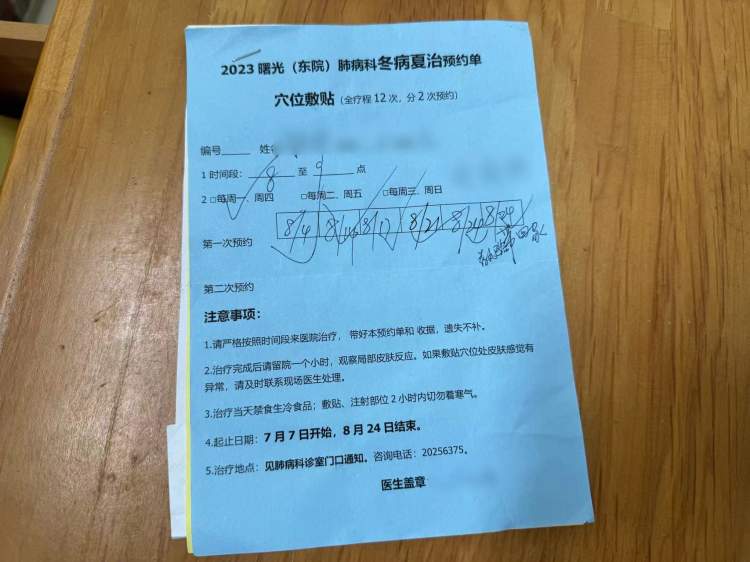 2023 曙光（东院）肺病科冬病夏治预约单
穴位敷贴（全疗程 12 次，分 2 次预约）
编号 姓
1 时间段： 8 至 9 点
2 □每周一、周四 □每周二、周五 □每周三、周日
8/4 8/17 8/21 8/24
第一次预约
第二次预约
注意事项：
1.请严格按照时间段来医院治疗， 带好本预约单和 收据，遗失不补。
2.治疗完成后请留院一个小时，观察局部皮肤反应。如果敷贴穴位处皮肤感觉有
异常，请及时联系现场医生处理。
3.治疗当天禁食生冷食品；敷贴、注射部位 2 小时内切勿着寒气。
4.起止日期：7 月 7 日开始，8 月 24 日结束。
5.治疗地点：见肺病科诊室门口通知。咨询电话：20256375。
医生盖章